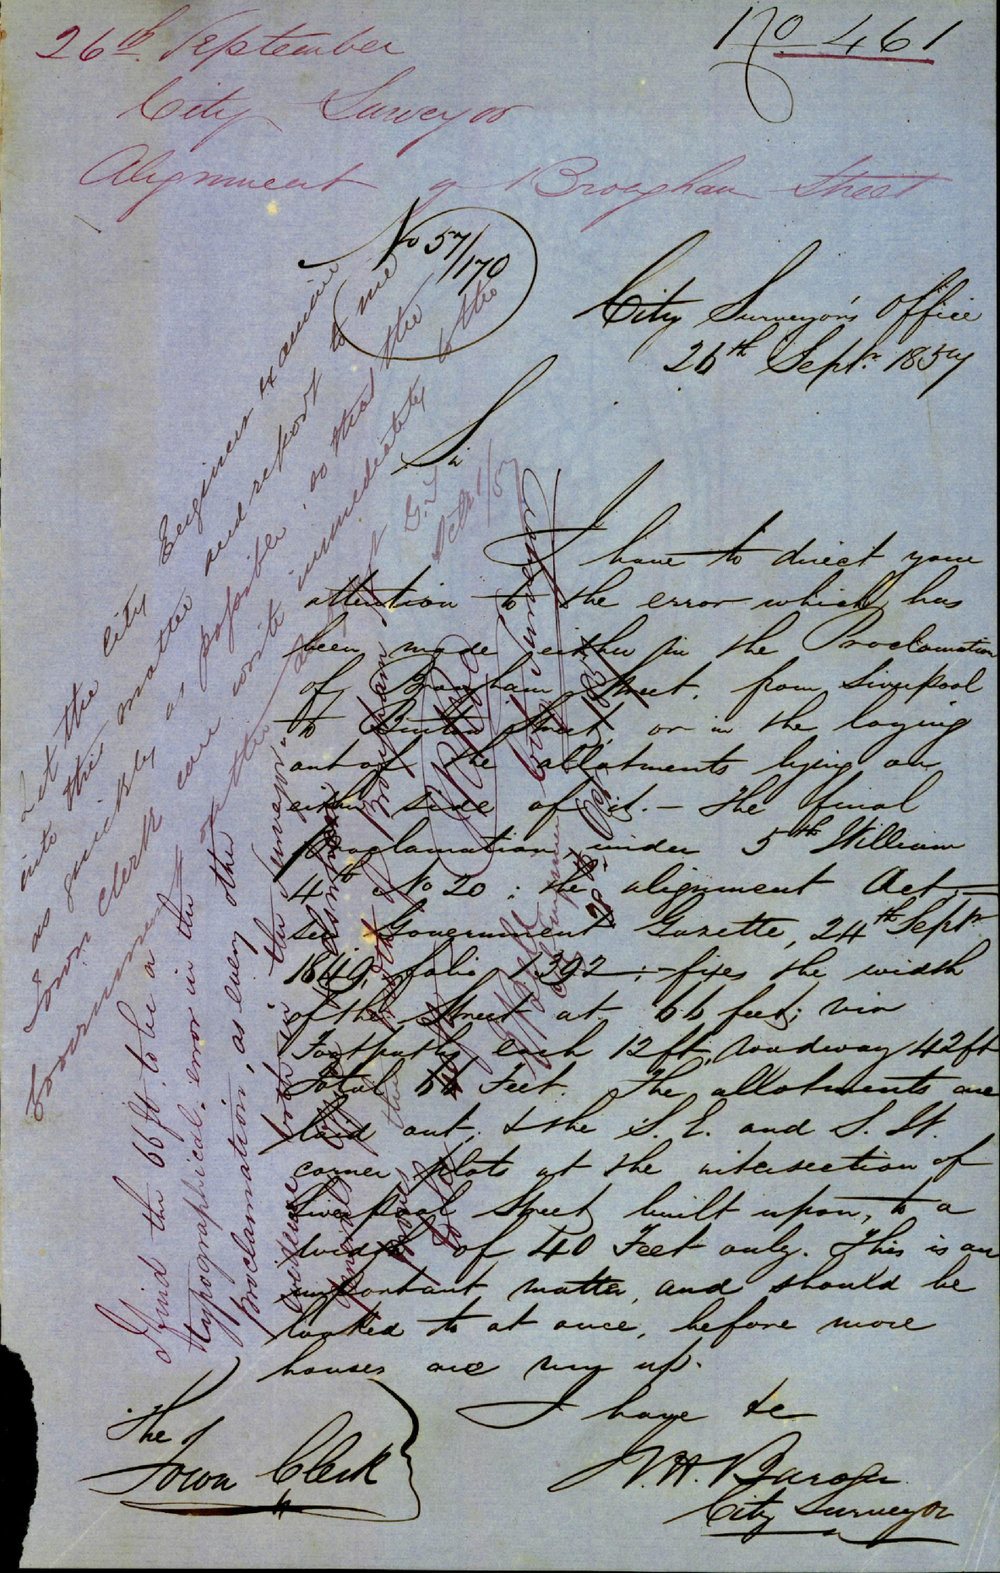 No 461
26th September
City Surveyor
Alignment of Brougham Street
No 57/170
City Surveyor's Office
26th Septr 1857
Sir
I have to direct your
attention to the error which has
been made either in the Proclamation
of Brougham Street, from Liverpool
to Street, or in the laying
out of the allotments lying on
either side of it. — The final
proclamation, under 5th William
4th No 20; the alignment Act, —
see Government Gazette, 24th Septr
1849, folio 1392; — fixes the width
of the Street at 66 feet; viz
Footpaths each 12 ft, roadway 42 ft
Total 66 Feet. The allotments are
laid out, & the S. E. and S. W.
corner plots at the intersection of
Liverpool Street built upon, to a
width of 40 Feet only. This is an
important matter, and should be
looked to at once, before more
houses are run up.
I have &c
City Surveyor
The
Town Clerk
Let the City Engineer examine
into this matter and report to me
as quickly as possible, so that the
Town Clerk can write immediately to the
Government
Oct 1/57
I find the 66 ft. to be a
typographical error in the
proclamation, as every other
evidence both in the Surveyor
General's
proves the width of Brougham
to be
City Surveyor